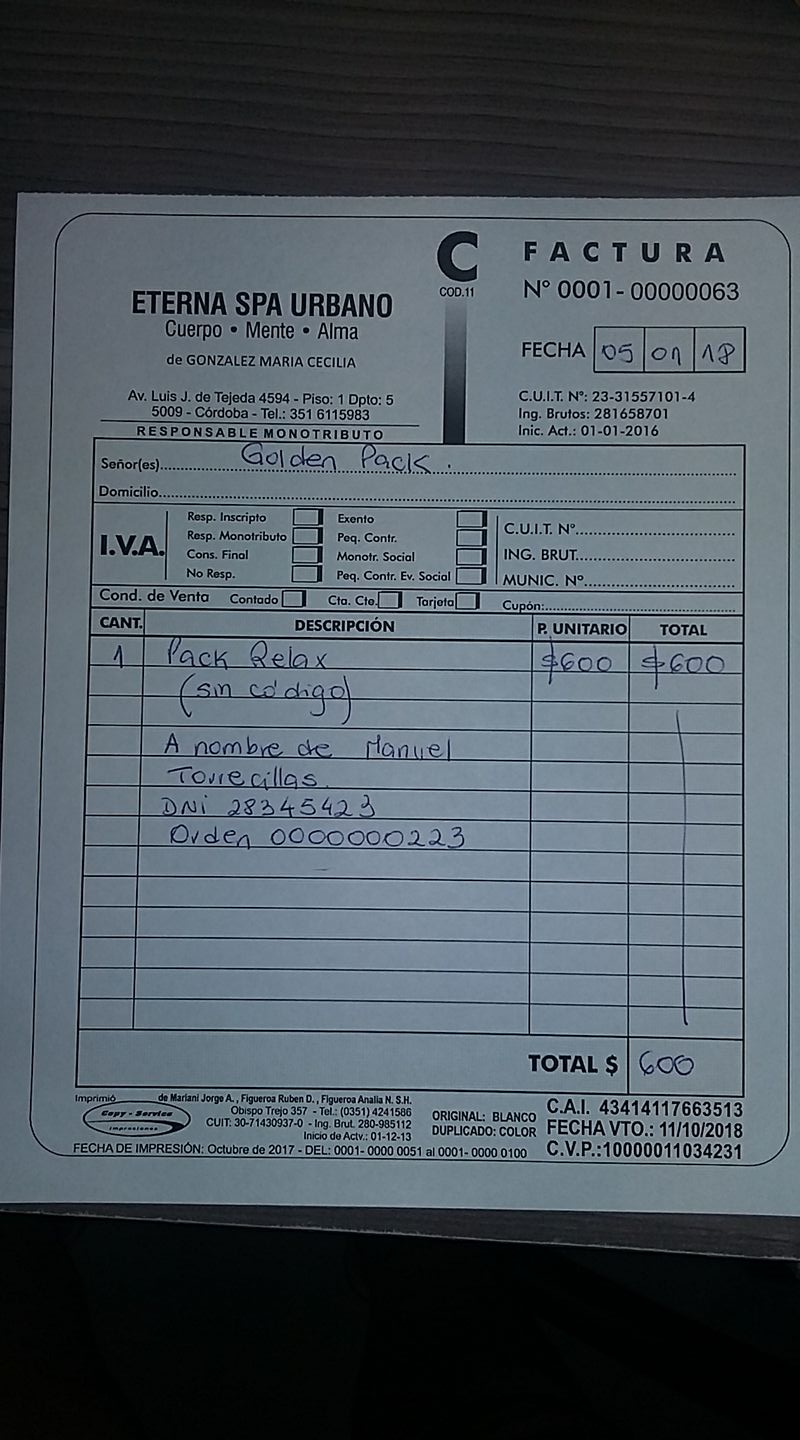 C
COD.11
FACTURA
N° 0001-00000063
ETERNA SPA URBANO
Cuerpo • Mente • Alma
de GONZALEZ MARIA CECILIA
FECHA 05 01 18
Av. Luis J. de Tejeda 4594 - Piso: 1 Dpto: 5
5009 - Córdoba - Tel.: 351 6115983
RESPONSABLE MONOTRIBUTO
C.U.I.T. N°: 23-31557101-4
Ing. Brutos: 281658701
Inic. Act.: 01-01-2016
Señor(es) Golden Pack.
Domicilio
I.V.A.
Resp. Inscripto Exento
Resp. Monotributo Peq. Contr.
Cons. Final Monotr. Social
No Resp. Peq. Contr. Ev. Social
C.U.I.T. N°
ING. BRUT.
MUNIC. N°
Cond. de Venta Contado Cta. Cte. Tarjeta Cupón:
CANT. DESCRIPCIÓN P. UNITARIO TOTAL
1 Pack Relax $600 $600
(sin código)
A nombre de Manuel
Torrecillas.
DNI 28345423
Orden 0000000223
TOTAL $ 600
Imprimió de Mariani Jorge A., Figueroa Ruben D., Figueroa Analia N. S.H.
Copy - Service
Impresiones
Obispo Trejo 357 - Tel.: (0351) 4241586
CUIT: 30-71430937-0 - Ing. Brut. 280-985112
Inicio de Actv.: 01-12-13
ORIGINAL: BLANCO
DUPLICADO: COLOR
C.A.I. 43414117663513
FECHA VTO.: 11/10/2018
C.V.P.:10000011034231
FECHA DE IMPRESIÓN: Octubre de 2017 - DEL: 0001- 0000 0051 al 0001- 0000 0100